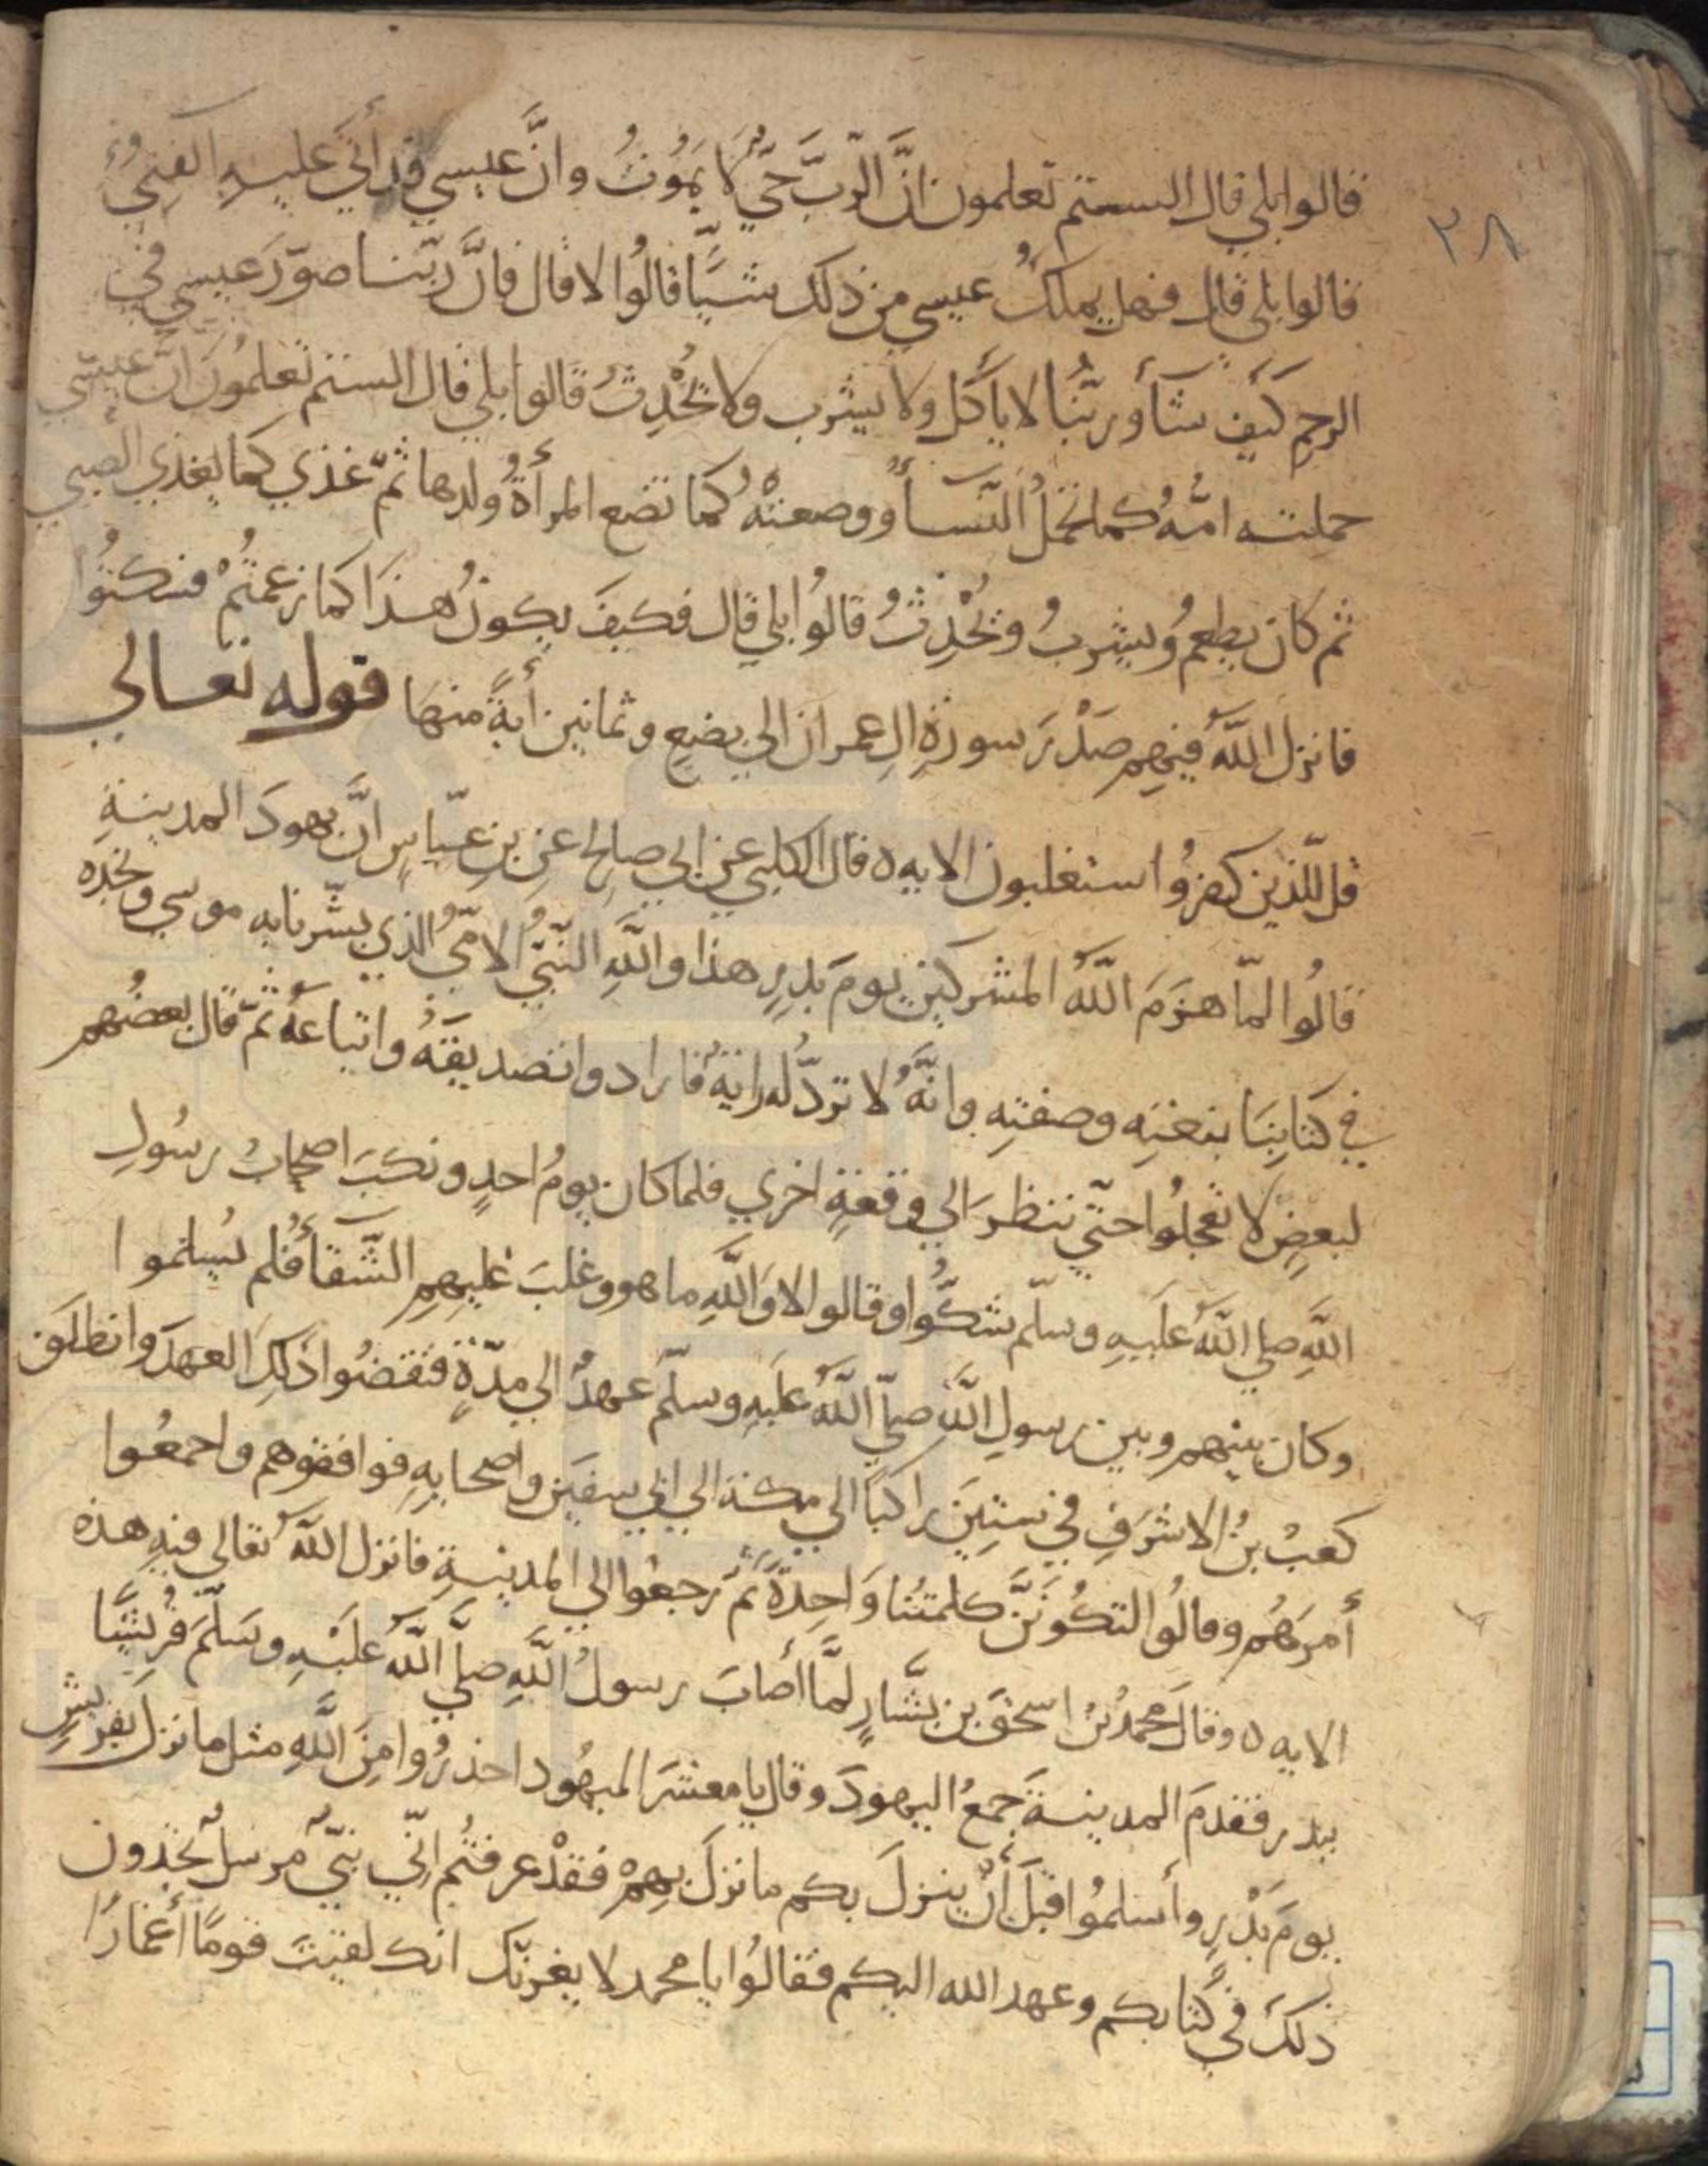 ٢٨
قالوا بلي قال الستم تعلمون انَّ الرّبَّ حَيٌّ لا يَمُوتُ وانَّ عيسي قد أتي عليهِ الفنىُ
قالوا بلي قال فهل يملكُ عيسي من ذلك شيًّا قالُوا لا قال فانَّ ربّنا صوّرَ عيسي في
الرحِمِ كيفَ شآء وربّنُا لا يأكل ولا يشرب ولا يُحْدِثُ قالوا بلي قال الستم تعلمُونَ انّ عيسي
حملته امُّهُ كما تحملُ النّسآءُ ووضعتْهُ كما تضع المرأةُ ولدها ثمّ غذي كما يغذي الصبي
ثم كان يطعمُ ويشربُ ويُحْدِثُ قالُوا بلي قال فكيفَ يكونُ هذَا كما زعمتُمْ فسكتُوا
فانزل اللَّهُ فيهِم صَدْرَ سورةِ الِ عمران الي بضعٍ وثمانين أيةً منها قوله تعالي
قل للّذين كفرُوا ستغلبون الايه ٥ قال الكلبي عن ابي صالحٍ عنِ بنِ عبّاسٍ انَّ يهودَ المدينةِ
قالُوا لمّا هزمَ اللَّهُ المشركين يومَ بدرٍ هذا واللَّهِ النّبيُّ الامّيُّ الذي بشّرنا به موسي ونجده
في كتابِنَا بنعْتِه وصفتِهِ وانَّهُ لا تردُّ له رايةٌ فارادوا تصديقَهُ واتباعَهُ ثمّ قال بعضُهم
لبعضٍ لا تعْجلُوا حتّي ننظرَ الي وقعةٍ اخري فلما كان يومُ احدٍ ونكبَ اصحابُ رسُولِ
اللَّهِ صلي اللَّهُ عليهِ وسلّم شكُّوا وقالوا لا وَاللَّهِ ما هو وغلبَ عليهِمِ الشّقأُ فلم يُسلموا
وكان بينهم وبين رسولِ اللَّهِ صلّي اللَّهُ عليهِ وسلّم عهدٌ الي مدّةٍ فنقضُوا ذلكَ العهدَ وانطلَق
كعبُ بنُ الاشرفِ في ستينَ راكبًا الي مكة الي ابي سفين واصحابِهِ فوافقوهم واجمعُوا
أمرَهُم وقالُوا لتكُونَنَّ كلمتُنا وَاحِدةً ثمّ رجعُوا الي المدينةِ فانزل اللَّهُ تعَالي فيهِ هذه
الايه ٥ وقالَ محمدُ بنُ اسحٰقَ بن يسَّارٍ لمَّا أصابَ رسولُ اللَّهِ صلَّي اللَّهُ عليْهِ وسَلّمَ قُريشًا
ببدر فقدمَ المدينةَ جمعُ اليهودَ وقال يا معشرَ اليهُود احذرُوا مِنَ اللَّهِ مثل ما نزلَ بقريشٍ
يومَ بدْرٍ وأسلمُوا قبلَ أنْ ينزلَ بكم ما نزلَ بِهِمْ فقدْ عرفتُم انِّي نبيٌّ مُرسلٌ تجدون
ذلكَ في كتابكم وعهد الله اليكم فقالُوا يا محمد لا يغرنّك انك لقيتَ قومًا أغمارًا